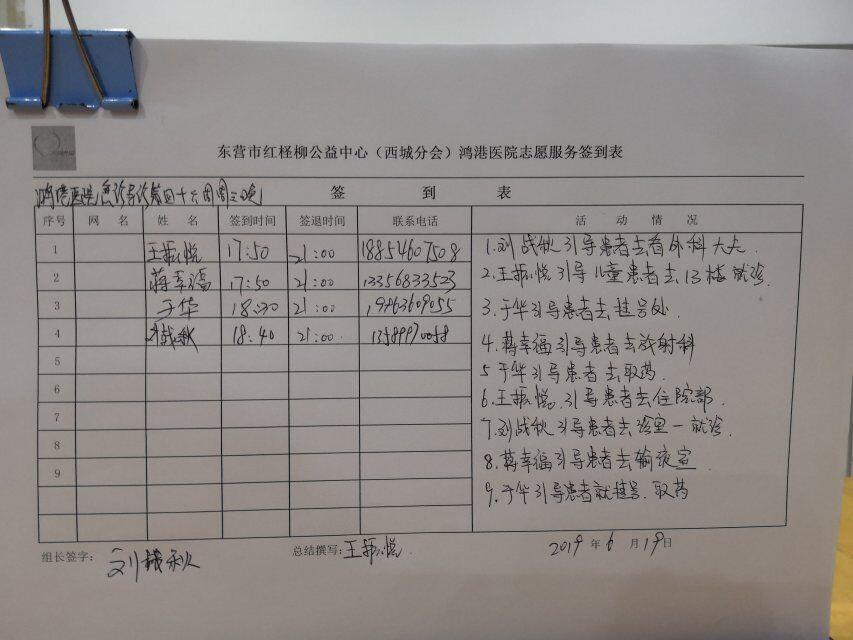 东营市红柽柳公益中心（西城分会）鸿港医院志愿服务签到表
鸿港医院急诊导诊第四十六周周三晚 签 到 表
序号 网 名 姓 名 签到时间 签退时间 联系电话 活 动 情 况
1 王振悦 17:50 21:00 18854607508
2 蒋幸福 17:50 21:00 13356833523
3 于华 18:30 21:00
4 刘战秋 18:40 21:00 13589970058
5
6
7
8
9
1.刘战秋引导患者去看外科大夫.
2.王振悦引导儿童患者去13楼就诊
3.于华引导患者去挂号处
4.蒋幸福引导患者去放射科
5于华引导患者去取药.
6.王振悦.引导患者去住院部.
7.刘战秋引导患者去诊室一就诊.
8.蒋幸福引导患者去输液室
9.于华引导患者就挂号.取药
组长签字： 刘战秋 总结撰写：王振悦 2019 年 6 月 19 日